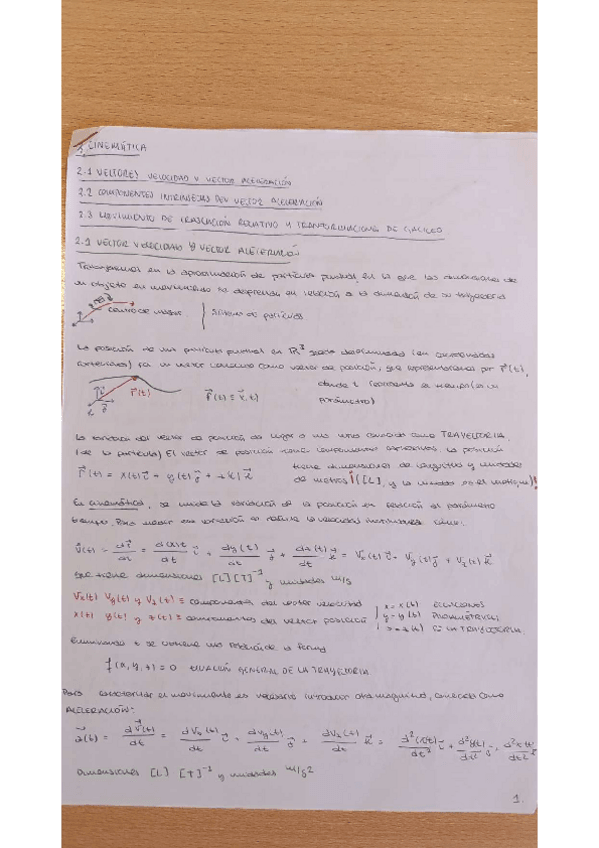 2. CINEMÁTICA
2.1 VECTORES VELOCIDAD Y VECTOR ACELERACIÓN
2.2 COMPONENTES INTRÍNSECAS DEL VECTOR ACELERACIÓN
2.3 MOVIMIENTO DE TRASLACIÓN RELATIVO Y TRANFORMACIONES DE GALILEO
2.1 VECTOR VELOCIDAD Y VECTOR ACELERACIÓN
en la aproximación de partícula puntual, en la que las dimensiones de
un objeto en movimiento se deprecian en relación a la dimensión de su trayectoria
centro de masas } sistema de partículas
La posición de una partícula puntual en ℝ³ queda determinada (en coordenadas
cartesianas) por un vector conocido como vector de posición, que representamos por r⃗(t),
r⃗(t)
donde t representa el tiempo (es un
parámetro)
La variación del vector de posición da lugar a una curva conocida como TRAYECTORIA
(de la partícula) El vector de posición tiene componentes cartesianas. La posición
r⃗(t) = x(t) i⃗ + y(t) j⃗ + z(t) k⃗
tiene dimensiones de longitud y unidades
de metros ([L], y la unidad es el metro, m)!
En cinemática, se mide la variación de la posición en relación al parámetro
tiempo. Para medir esa variación se define la velocidad instantánea como:
v⃗(t) = dr⃗/dt = dx(t)/dt i⃗ + dy(t)/dt j⃗ + dz(t)/dt k⃗ = Vx(t) i⃗ + Vy(t) j⃗ + Vz(t) k⃗
que tiene dimensiones [L][T]⁻¹ y unidades m/s
Vx(t) Vy(t) y Vz(t) ≡ componentes del vector velocidad
x(t) y(t) y z(t) ≡ componentes del vector posición
x = x(t) ECUACIONES
y = y(t) PARAMÉTRICAS
z = z(t) DE LA TRAYECTORIA
Eliminando t se obtiene una relación de la forma
f(x, y, z) = 0 ECUACIÓN GENERAL DE LA TRAYECTORIA
Para caracterizar el movimiento es necesario introducir otra magnitud, conocida como
ACELERACIÓN:
a⃗(t) = dv⃗(t)/dt = dVx(t)/dt i⃗ + dVy(t)/dt j⃗ + dVz(t)/dt k⃗ = d²x(t)/dt² i⃗ + d²y(t)/dt² j⃗ + d²z(t)/dt² k⃗
dimensiones [L] [T]⁻² y unidades m/s²
1.